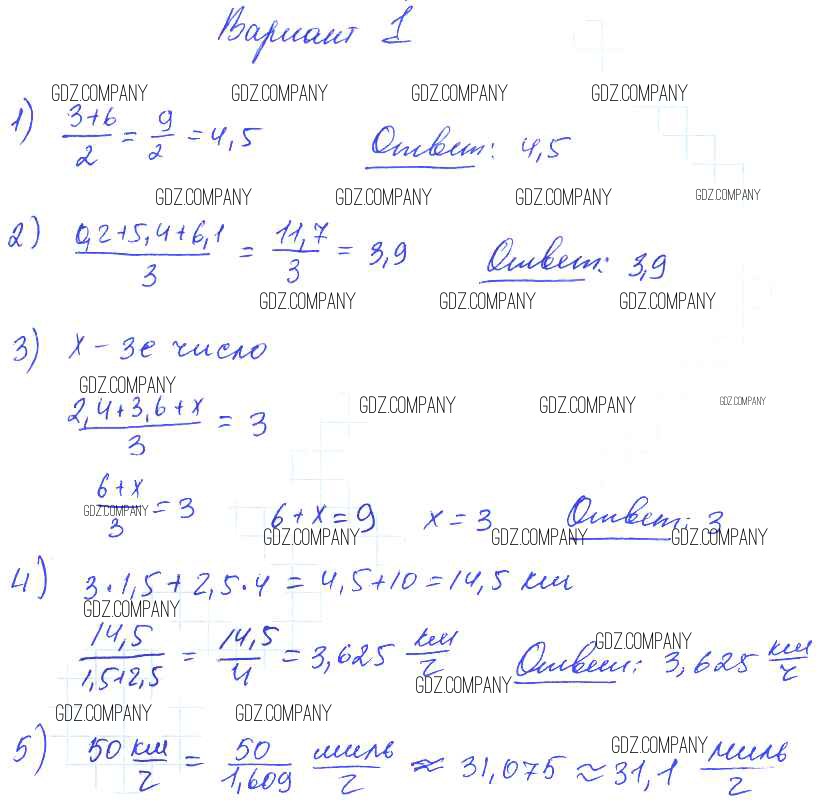 Вариант 1
GDZ.COMPANY GDZ.COMPANY GDZ.COMPANY GDZ.COMPANY
1) (3+6)/2 = 9/2 = 4,5 Ответ: 4,5
GDZ.COMPANY GDZ.COMPANY GDZ.COMPANY GDZ.COMPANY
2) (0,2+5,4+6,1)/3 = 11,7/3 = 3,9 Ответ: 3,9
GDZ.COMPANY GDZ.COMPANY GDZ.COMPANY
3) x - 3е число
GDZ.COMPANY
(2,4+3,6+x)/3 = 3 GDZ.COMPANY GDZ.COMPANY GDZ.COMPANY
(6+x)/3 = 3 6+x=9 x=3 Ответ: 3
GDZ.COMPANY GDZ.COMPANY GDZ.COMPANY GDZ.COMPANY
4) 3·1,5+2,5·4=4,5+10=14,5 км
GDZ.COMPANY
14,5/(1,5+2,5) = 14,5/4 = 3,625 км/ч Ответ: 3,625 км/ч
GDZ.COMPANY GDZ.COMPANY
GDZ.COMPANY GDZ.COMPANY
5) 50 км/ч = 50/1,609 миль/ч ≈ 31,075 ≈ 31,1 миль/ч
GDZ.COMPANY